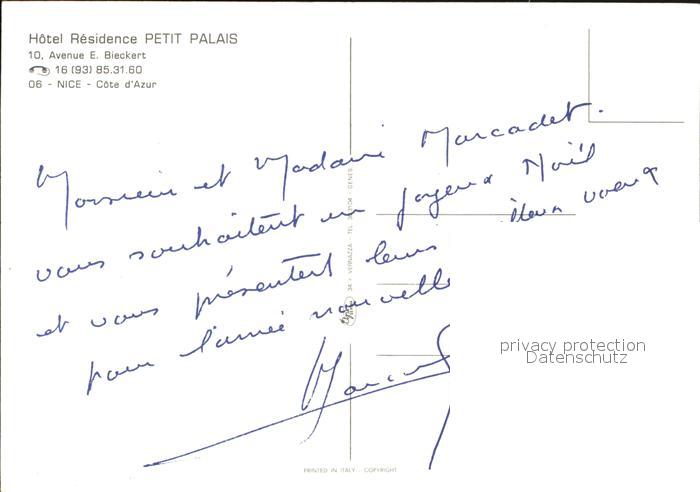 Hôtel Résidence PETIT PALAIS
10, Avenue E. Bieckert
16 (93) 85.31.60
06 - NICE - Côte d'Azur
Monsieur et Madame Marcadet.
vous souhaitent un joyeux Noël
et vous présentent leurs voeux
pour l'année nouvelle
privacy protection
Datenschutz
PRINTED IN ITALY - COPYRIGHT